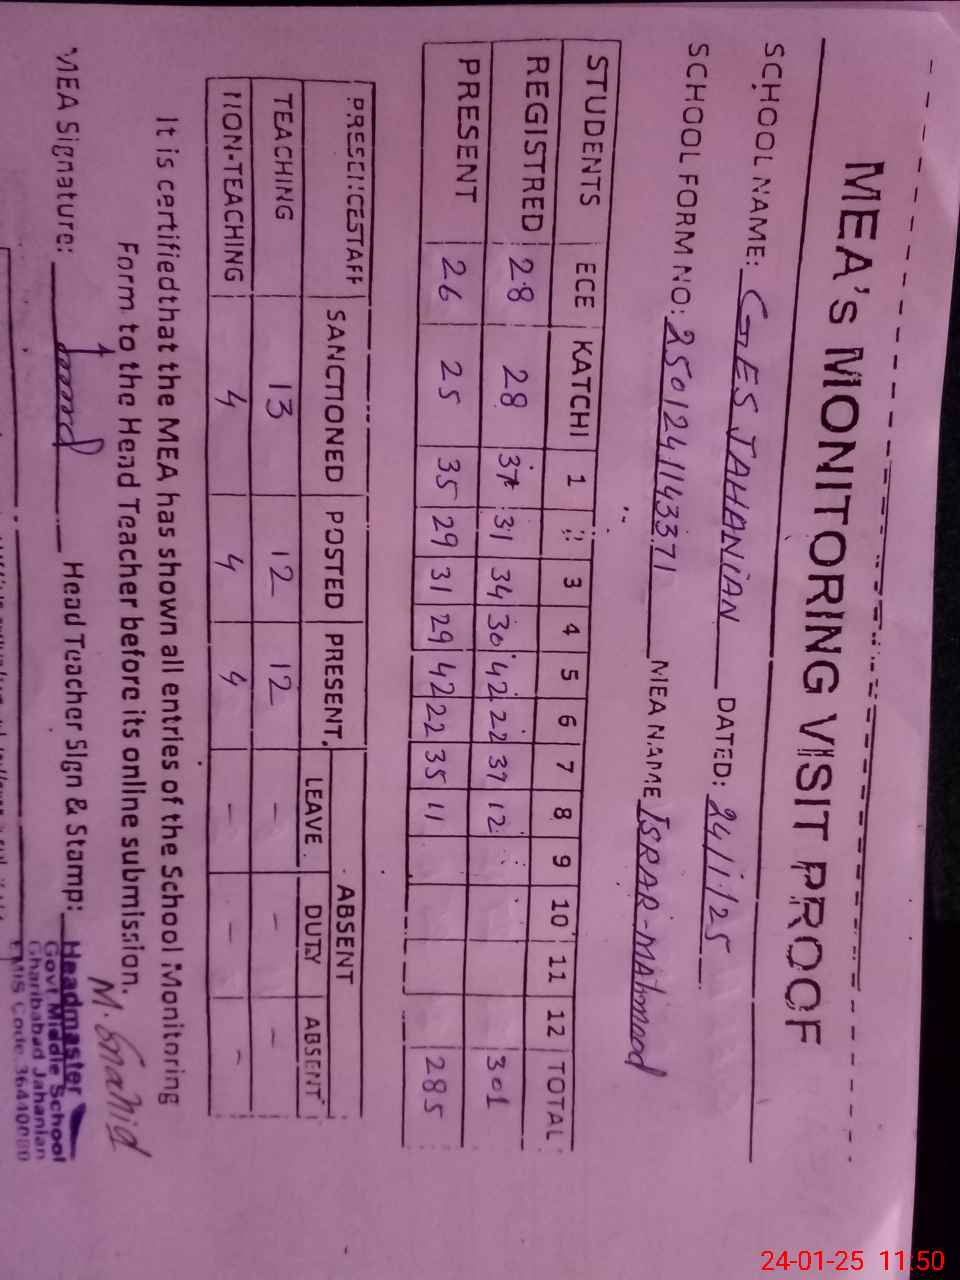 MEA's MONITORING VISIT PROOF
SCHOOL NAME: GES JAHANIAN DATED: 24/1/25
SCHOOL FORM NO: 2501241143371 MEA NAME ISRAR-MAhmood
STUDENTS ECE KATCHI 1 2 3 4 5 6 7 8 9 10 11 12 TOTAL
REGISTRED 28 28 37 31 34 30 42 22 37 12 301
PRESENT 26 25 35 29 31 29 42 22 35 11 285
PRESENCESTAFF SANCTIONED POSTED PRESENT ABSENT
LEAVE DUTY ABSENT
TEACHING 13 12 12 - - -
NON-TEACHING 4 4 4 - - -
It is certifiedthat the MEA has shown all entries of the School Monitoring
Form to the Head Teacher before its online submission.
MEA Signature: Head Teacher Sign & Stamp:
M. Shahid
Headmaster
Govt Middle School
Gharibabad Jahanian
EMIS Code 36440080
24-01-25 11:50